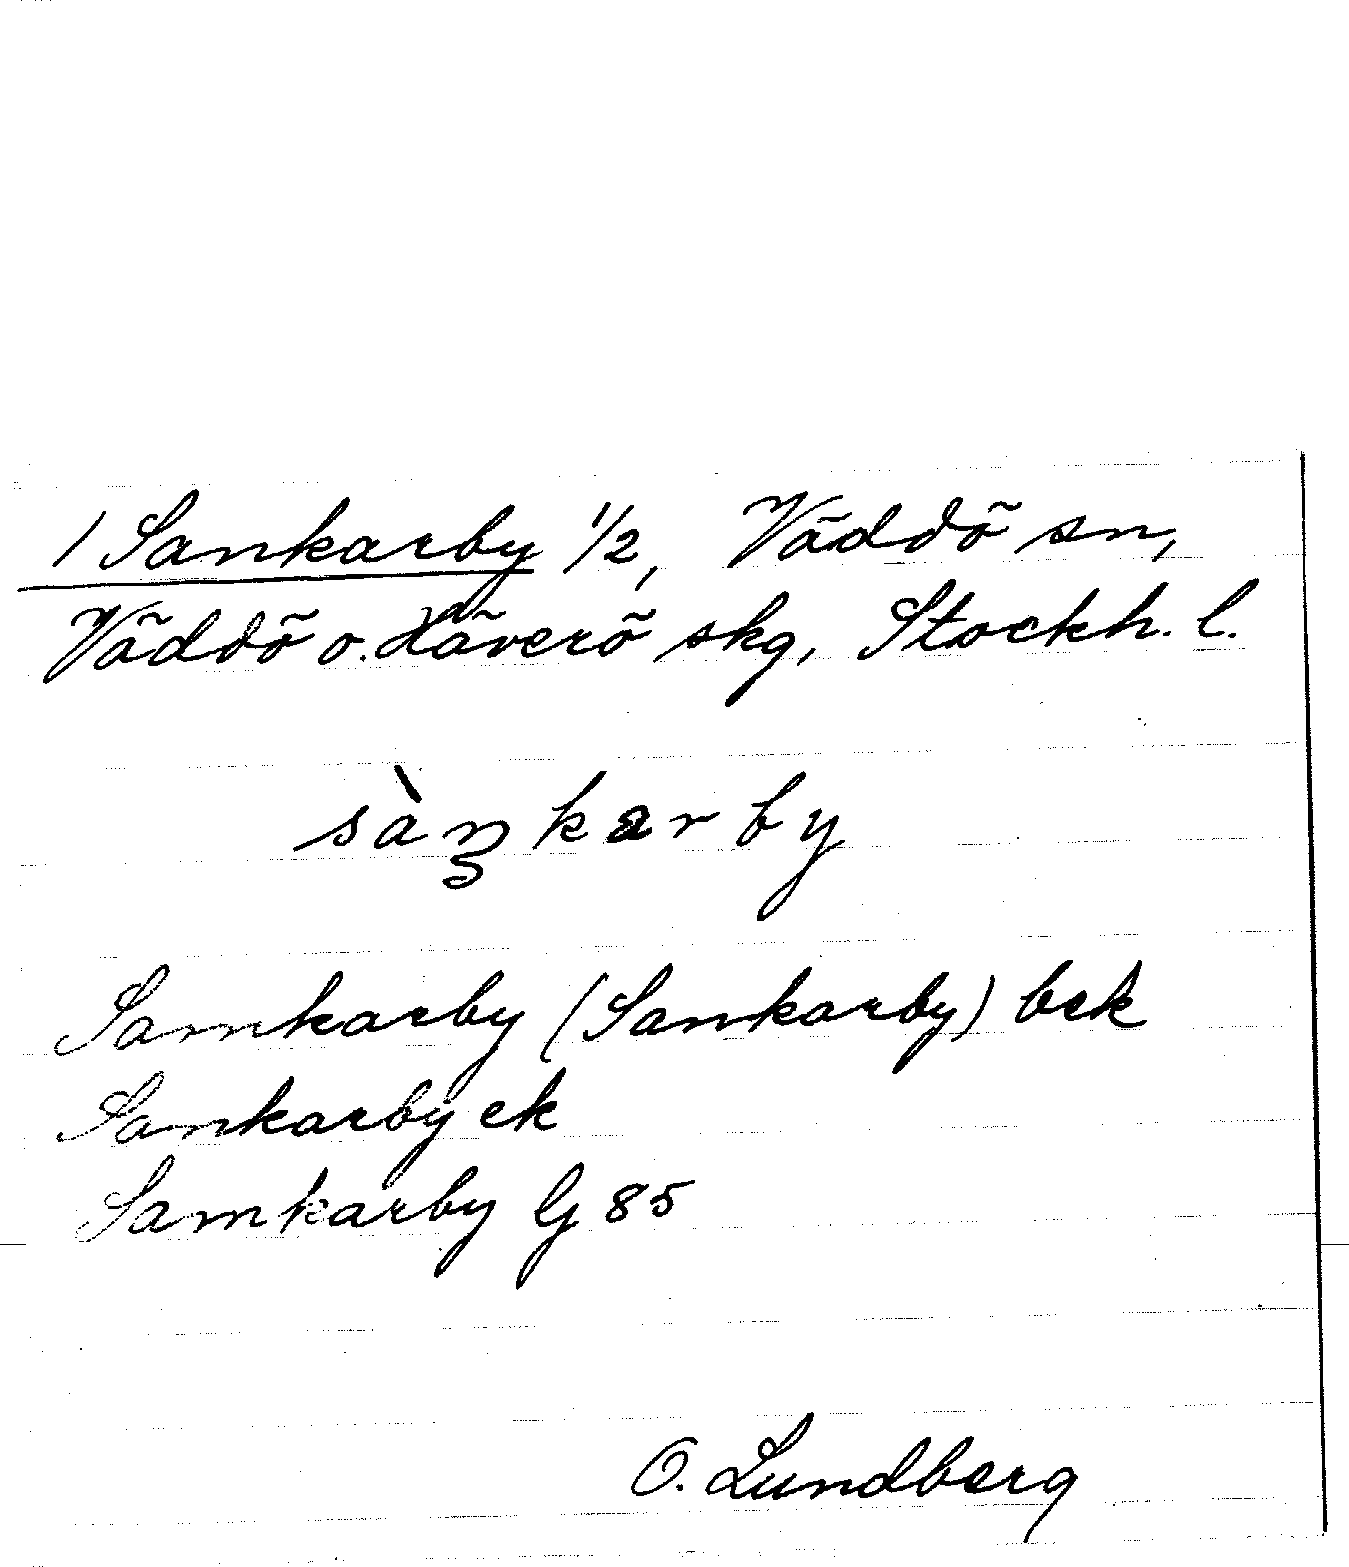 1 Sankarby 1/2, Väddö sn,
Väddö o. Häverö skg, Stockh. l.
sàŋkarby
Samkarby (Sankarby) bek
Sankarby ek
Samkarby G 85
O. Lundberg